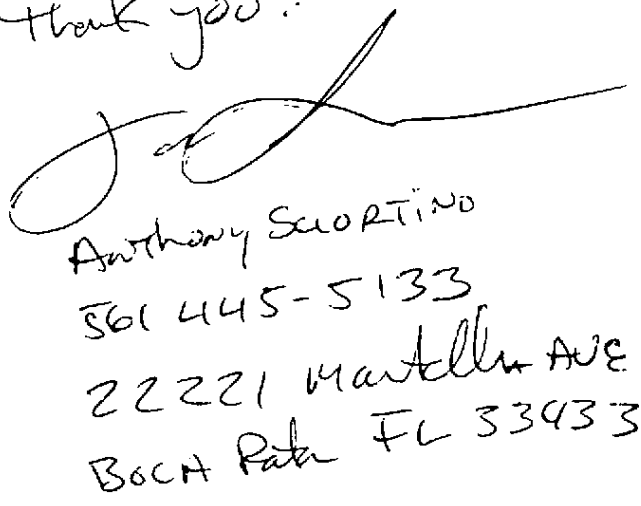 Thank you!
Anthony Sciortino
561 445-5133
22221 Martella AVE
BOCA Raton FL 33433